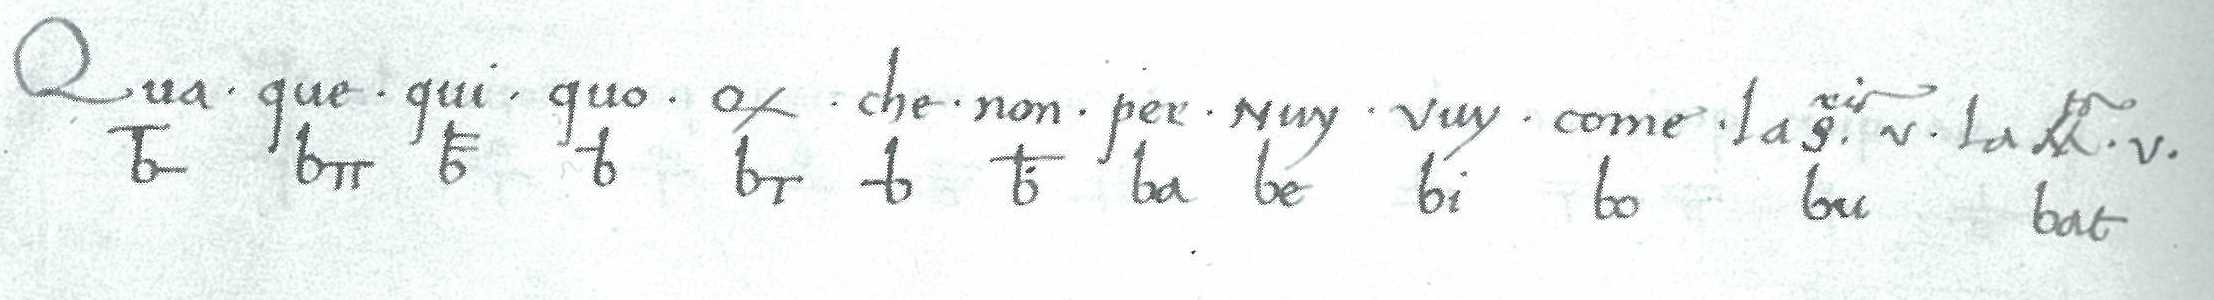 Qua · que · qui · quo · · che · non · per · Nuy · vuy · come · la S. v. la v.
b b b b b b b ba be bi bo bu bat